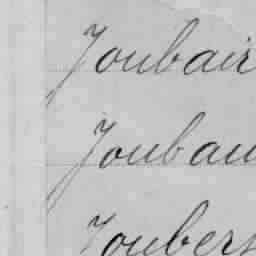 Joubair
Jouban
Joubers